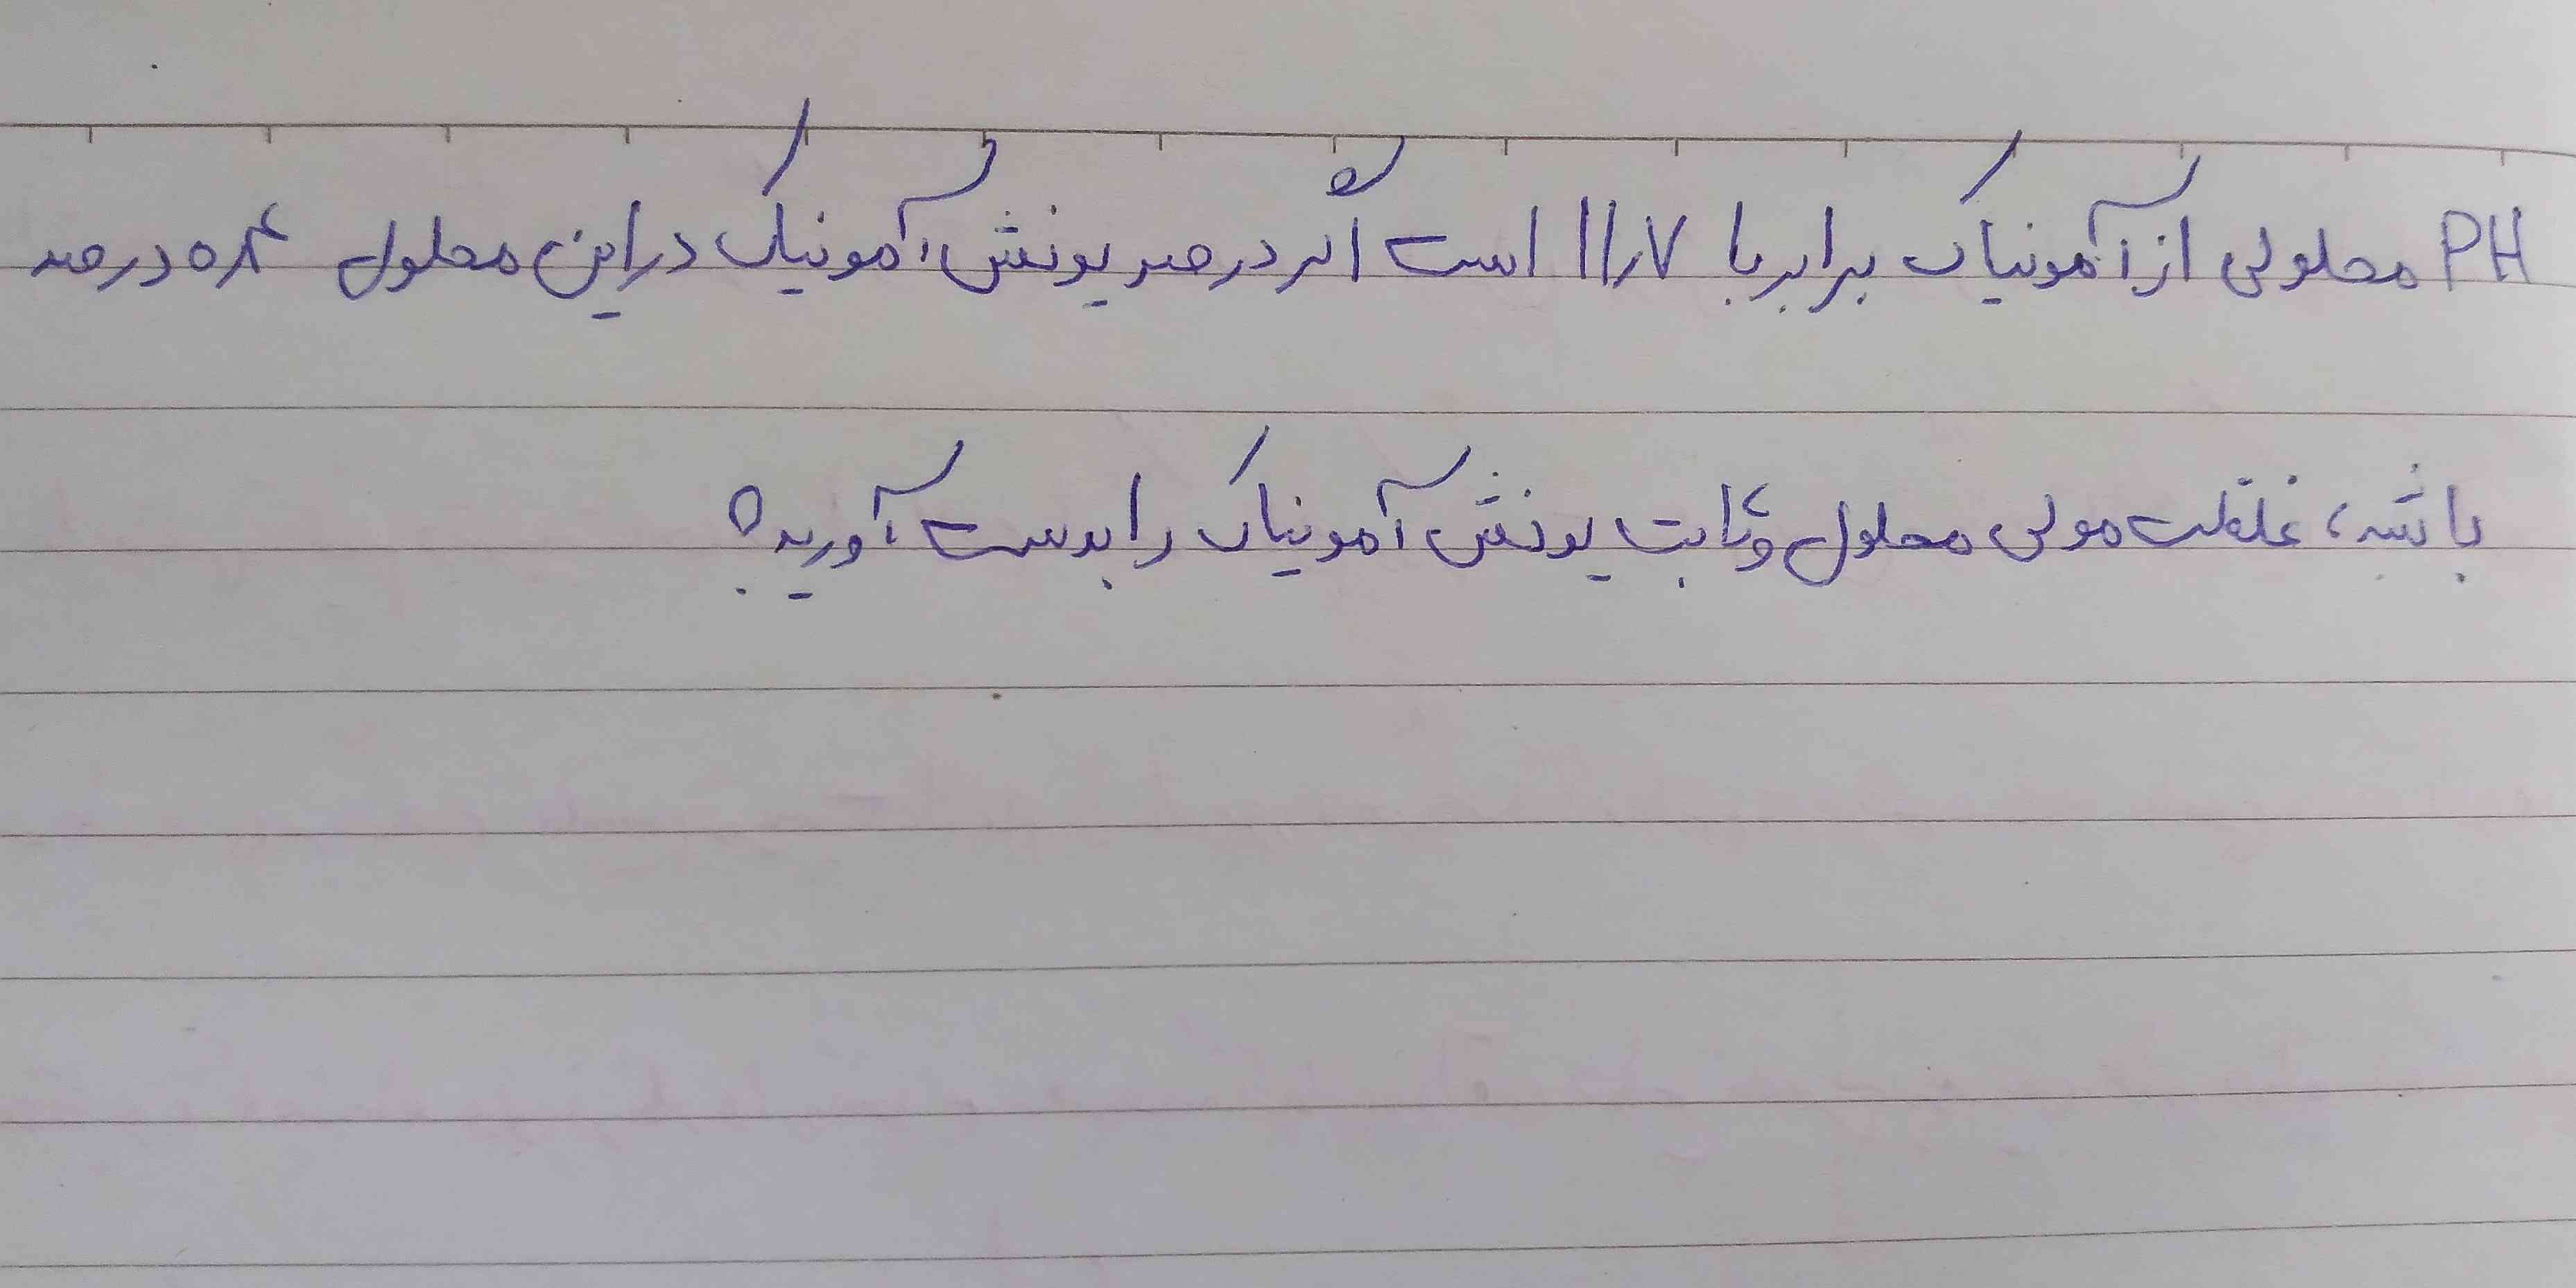 PH محلولی از آمونیاک برابر با ۱۱٫۷ است اگر درصد یونش آمونیاک در این محلول ۰٫۴ درصد
باشد، غلظت مولی محلول و ثابت یونش آمونیاک را بدست آورید؟